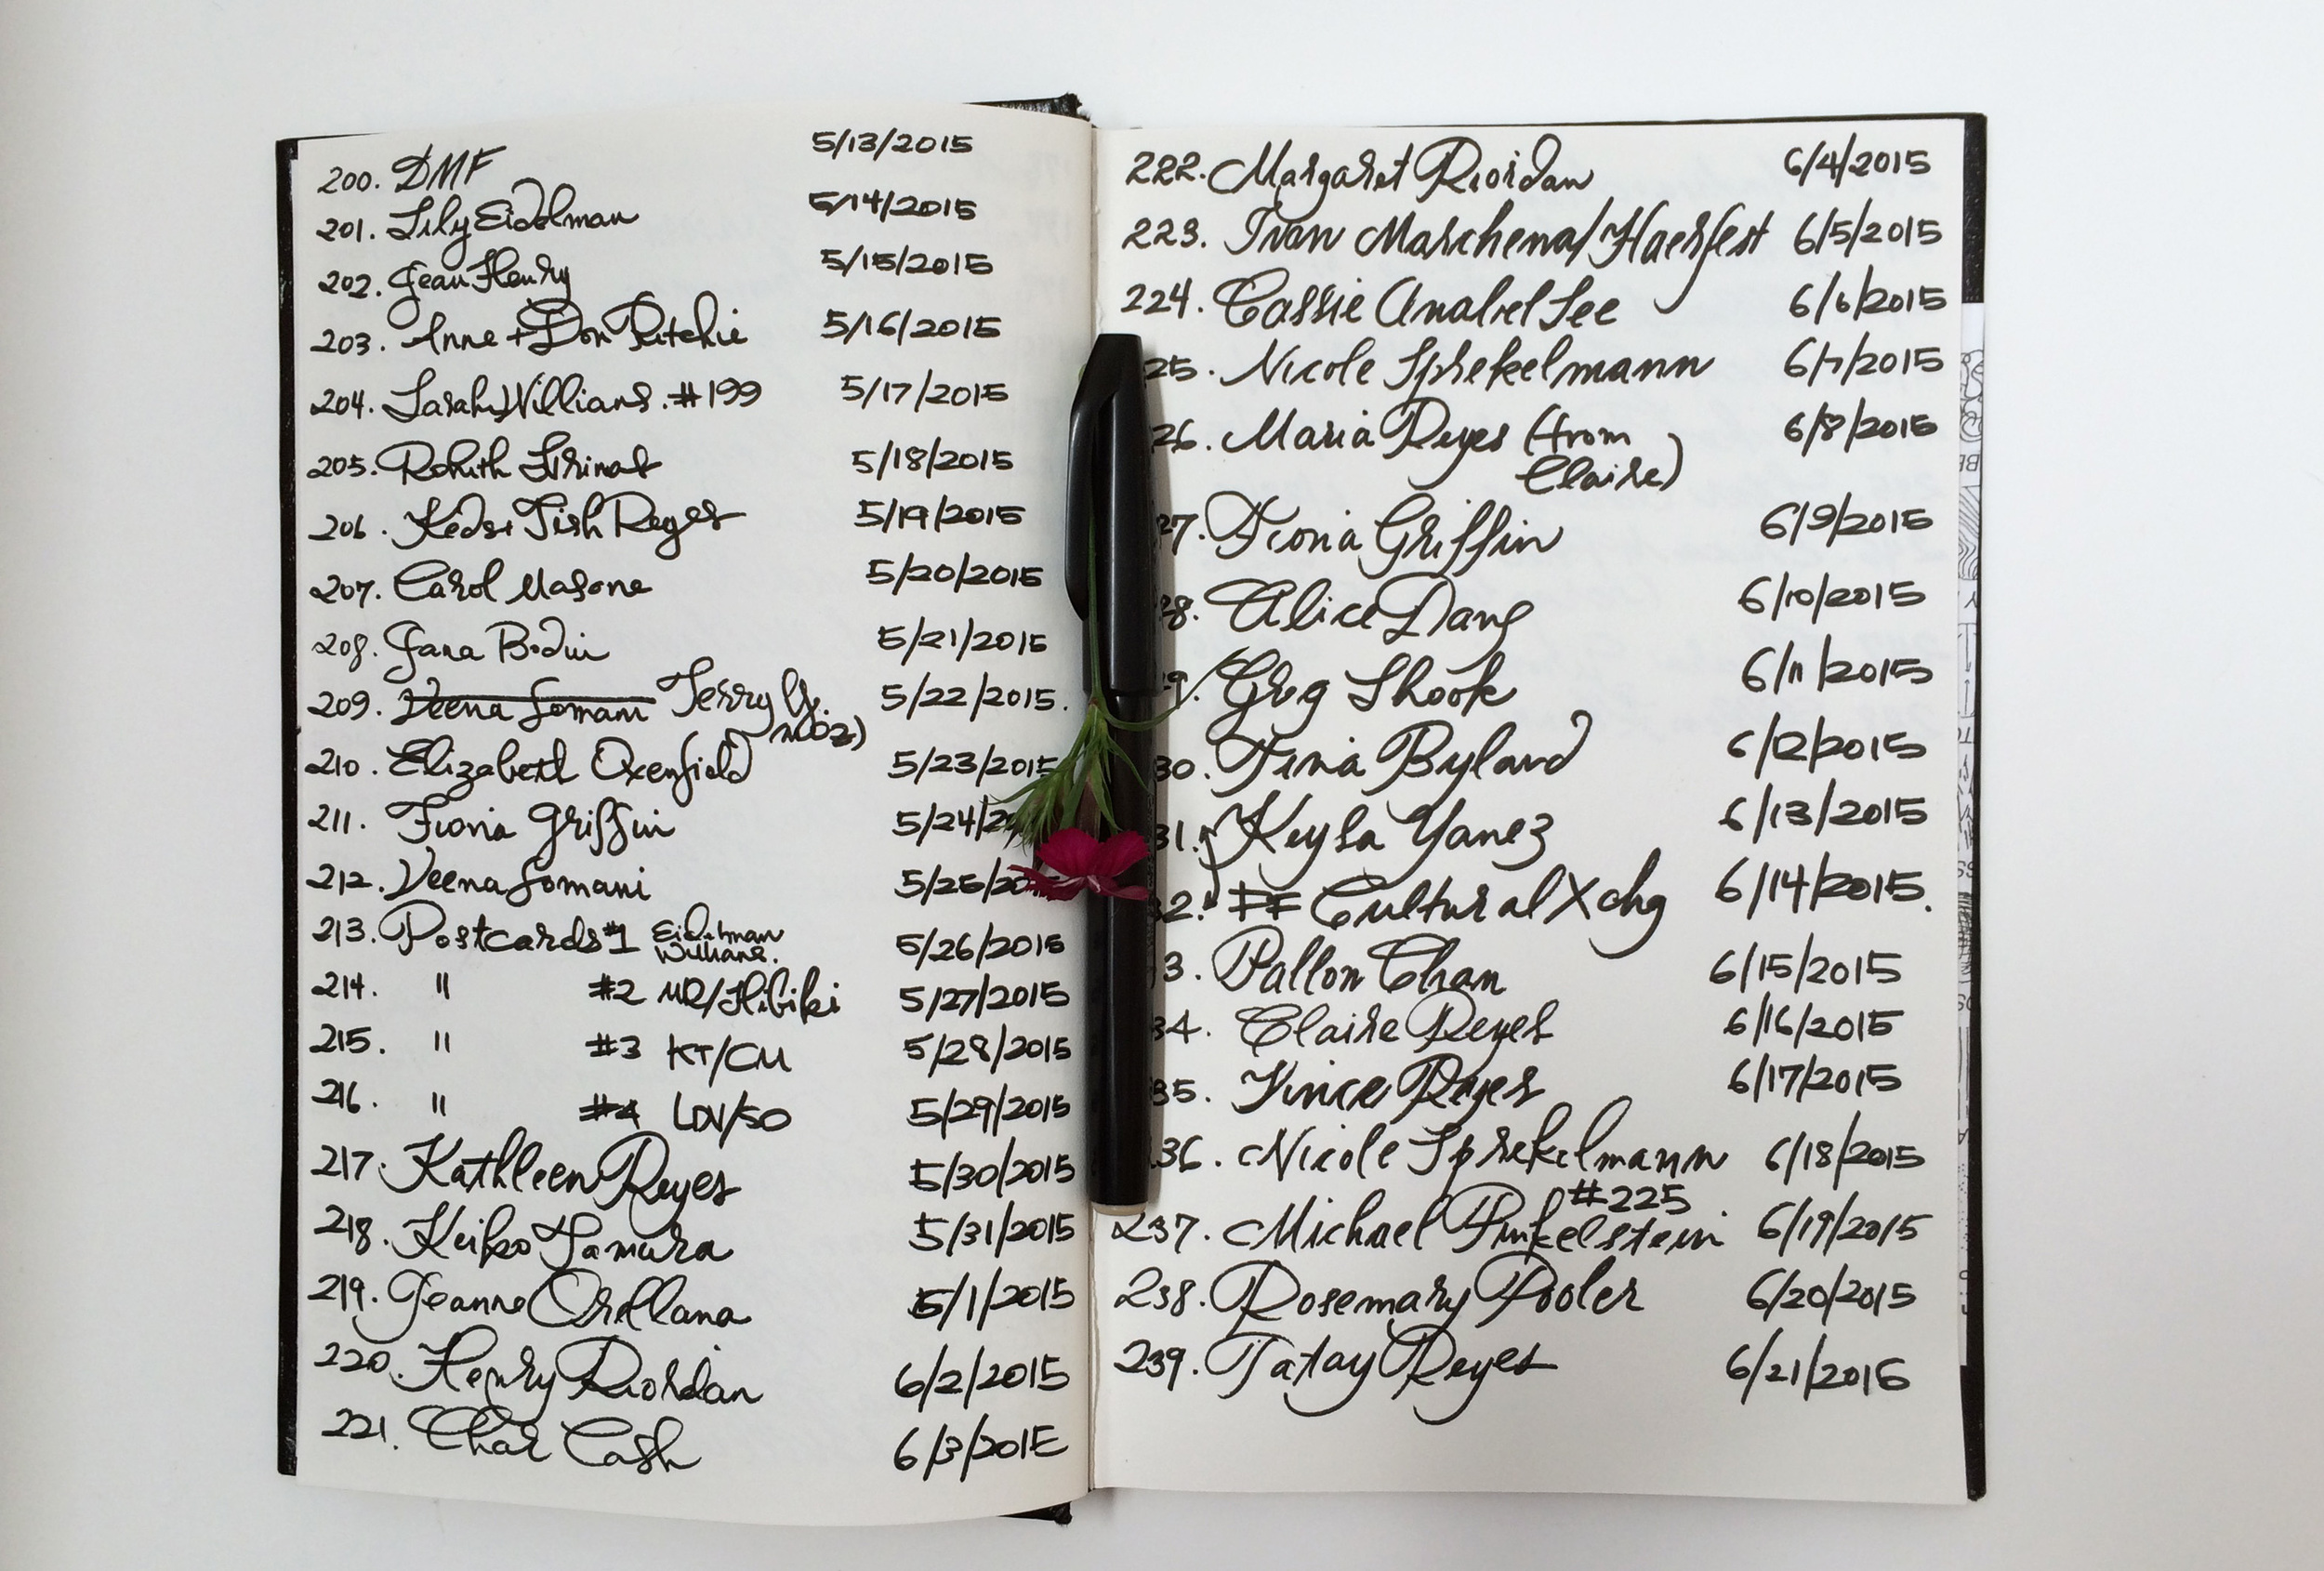 200. DMF 5/13/2015
201. Lily Eidelman 5/14/2015
202. Jean Henry 5/15/2015
203. Anne + Don Ritchie 5/16/2015
204. Sarah Williams. #199 5/17/2015
205. Rohith Srinas 5/18/2015
206. Kedsi Tish Reyes 5/19/2015
207. Carol Masone 5/20/2015
208. Jana Bodin 5/21/2015
209. Veena Somani Terry Y. 5/22/2015.
210. Elizabeth Oxenfield 5/23/2015
211. Fiona Griffin 5/24/2
212. Veena Somani 5/25/20
213. Postcards #1 Eidelman 5/26/2015
Williams.
214. " #2 MR/Hibiki 5/27/2015
215. " #3 KT/CM 5/28/2015
216. " #4 LDV/SO 5/29/2015
217. Kathleen Reyes 5/30/2015
218. Keiko Tamura 5/31/2015
219. Jeanne Orellana 5/1/2015
220. Henry Riordan 6/2/2015
221. Char Cash 6/3/2015
222. Margaret Riordan 6/4/2015
223. Ivan Marchena/Haerfest 6/5/2015
224. Cassie Anabel Lee 6/6/2015
25. Nicole Sprekelmann 6/7/2015
26. Maria Reyes (from 6/8/2015
Claire)
27. Fiona Griffin 6/9/2015
28. Alice Dang 6/10/2015
9. Greg Shook 6/11/2015
30. Tina Byland 6/12/2015
31. Keyla Yanez 6/13/2015
32. Cultural Xchg 6/14/2015.
3. Pallon Chan 6/15/2015
34. Claire Reyes 6/16/2015
35. Vince Reyes 6/17/2015
36. Nicole Sprekelmann 6/18/2015
#225
237. Michael Finkelstein 6/19/2015
238. Rosemary Pooler 6/20/2015
239. Tatay Reyes 6/21/2015